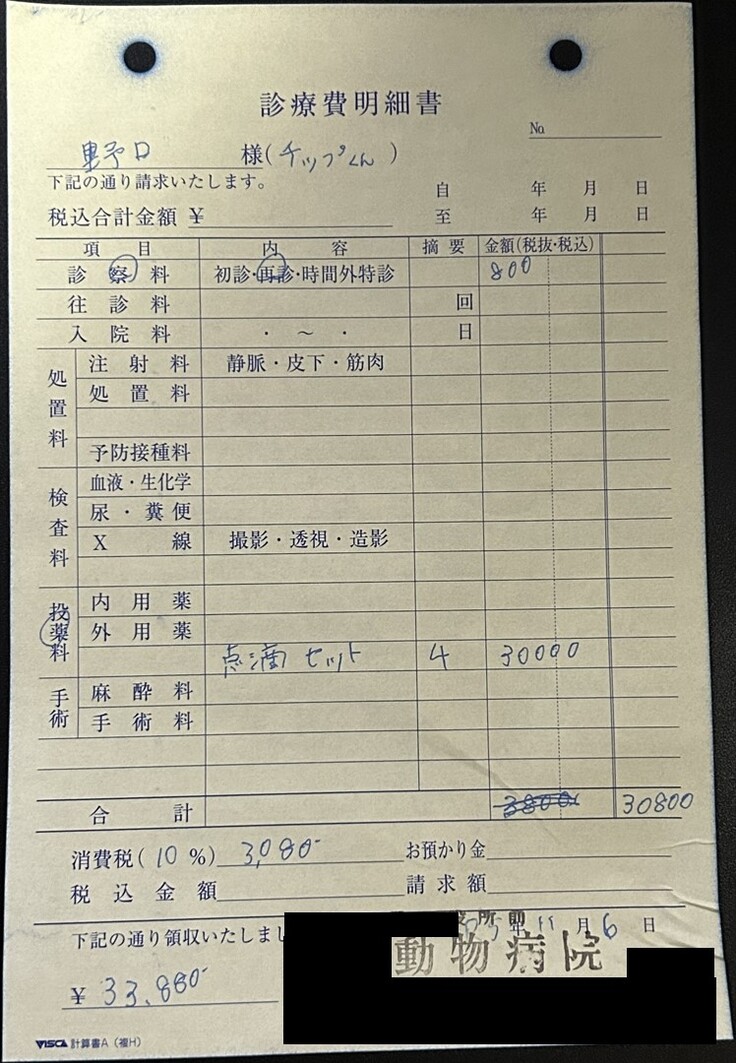 診療費明細書
No
野口 様(チップくん)
下記の通り請求いたします。
自 年 月 日
税込合計金額 ¥
至 年 月 日
項目 内容 摘要 金額(税抜・税込)
診察料 初診・再診・時間外特診 800
往診料 回
入院料 ・ ~ ・ 日
処置料
注射料 静脈・皮下・筋肉
処置料
予防接種料
検査料
血液・生化学
尿・糞便
X線 撮影・透視・造影
投薬料
内用薬
外用薬
点滴セット 4 30000
手術
麻酔料
手術料
合計 3800 30800
消費税(10%) 3,080- お預かり金
税込金額 請求額
下記の通り領収いたしまし
所前
年 11 月 6 日
動物病院
¥ 33,880-
VISCA 計算書A(複H)